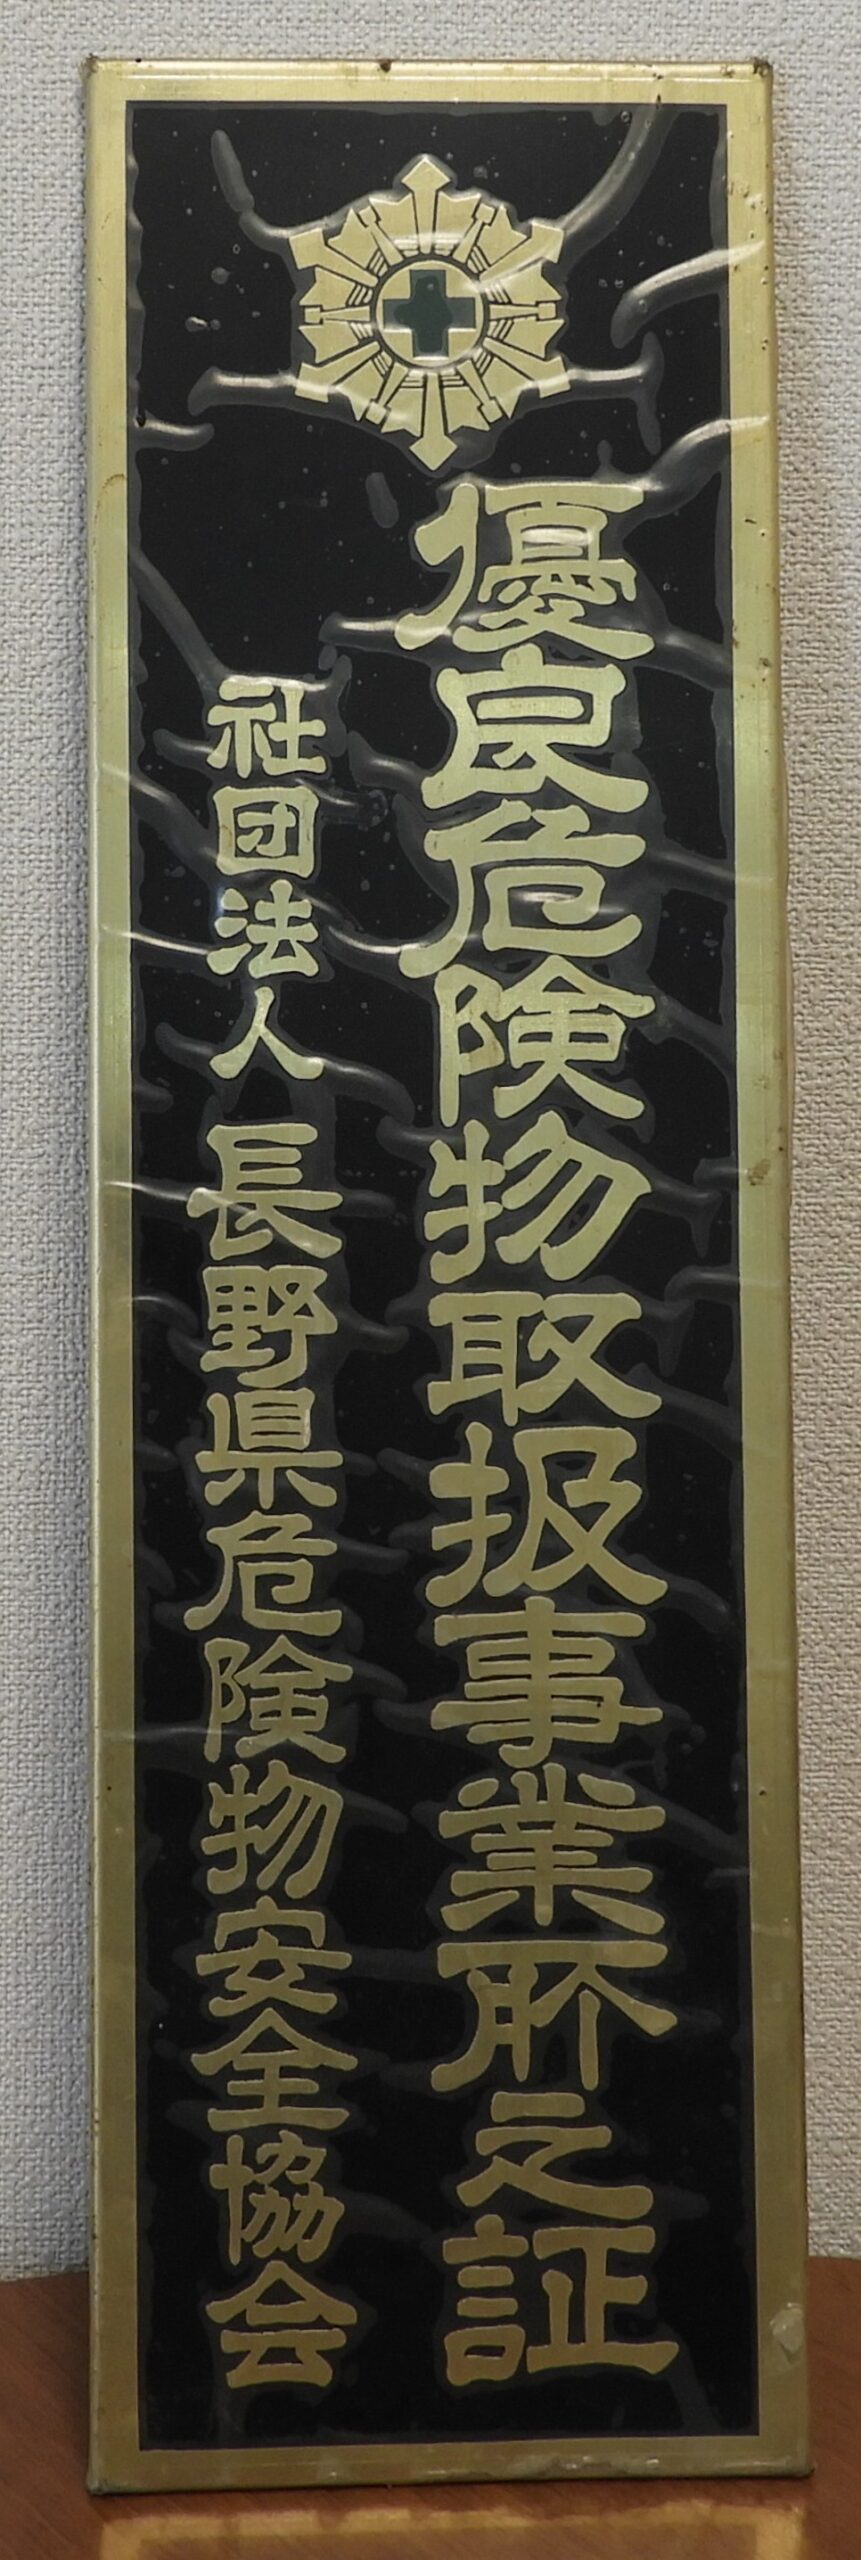 優良危険物取扱事業所之証
社団法人 長野県危険物安全協会